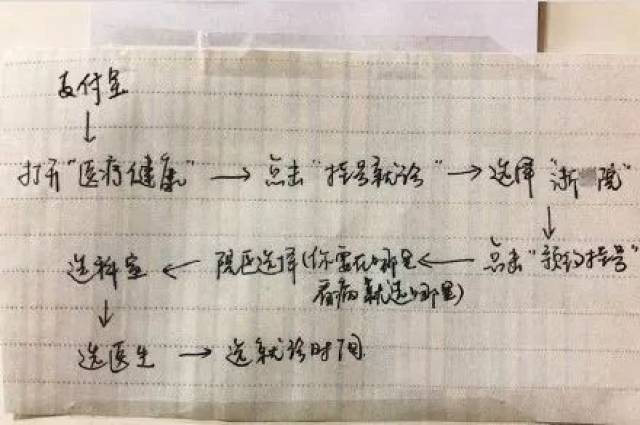 支付宝
↓
打开“医疗健康” → 点击“挂号就诊” → 选择“浙院”
↓
点击“预约挂号”
← 院区选择(你要在哪里
看病就选哪里)
← 选科室
↓
选医生 → 选就诊时间